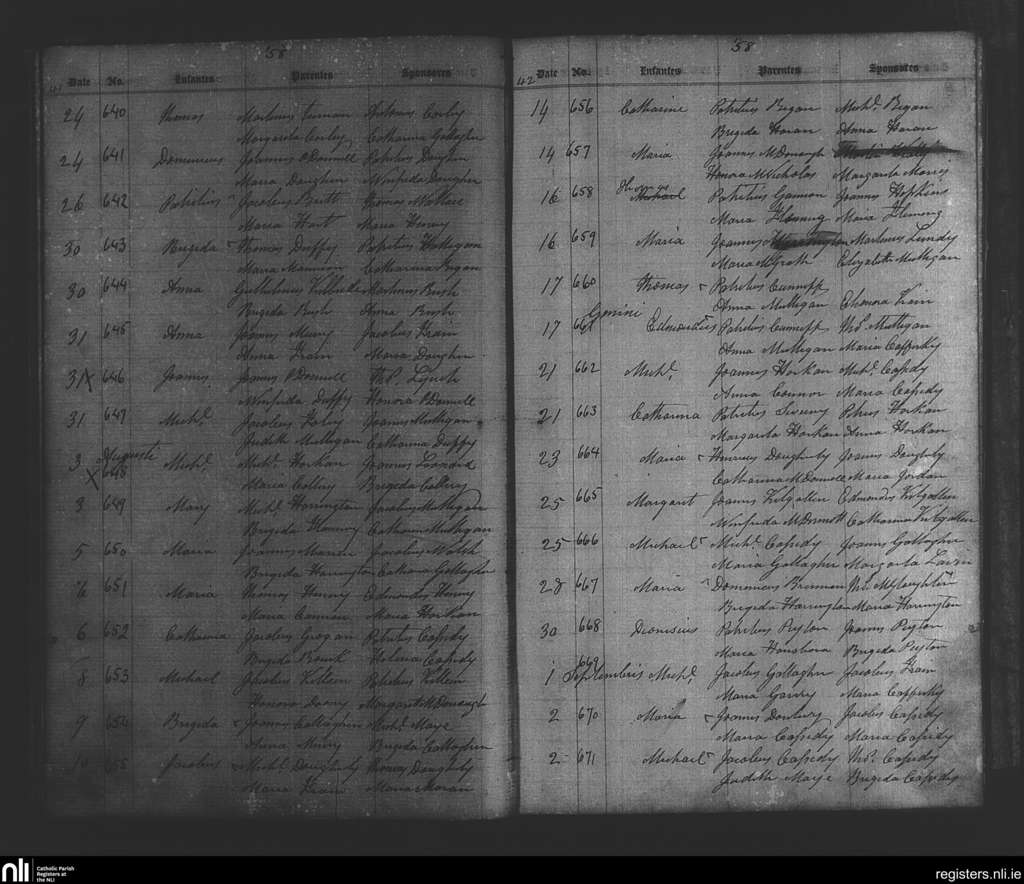 41 '58
Date No. Infantes Parentes Sponsores
24 640 Thomas Martinus Curran Antonius Conley
Margarita Conley Catharina Gallagher
24 641 Dominicus Joannes O'Donnell Patritius Daugher
Maria Daugher Winifreda Daugher
26 642 Patritius Jacobus Brett Thomas Wallace
Maria Hart Maria Henry
30 643 Brigida Thomas Duffy Patritius Halligan
Maria Catharina Began
30 644 Anna Gulielmus Martinus Rush
Brigida Rush Anna Rush
31 645 Anna Joannes Meiny Jacobus Frain
Anna Frain Maria Daugher
31 X 646 Joannes Joannes O'Donnell Ths. Lynch
Winifrida Duffy Honora O'Donnell
31 647 Michl. Jacobus Foley Joannes Mulligan
Judith Mulligan Catharina Duffy
Augusti
3 X 648 Michl. Michl. Horkan Joannes Leonard
Maria Collery Brigida Collery
3 649 Mary Michl. Harrington Jacobus Mulligan
Brigida Henry Catharin Mulligan
5 650 Maria Joannes Jacobus Walsh
Brigida Harrington Catharina Gallagher
6 651 Maria Thomas Henry Edmondus Henry
Maria Cannon Maria Horkan
6 652 Catharina Jacobus Grogan Patritius Cassidy
Brigida Helena Cassidy
8 653 Michael Jacobus Killeen Patritius Killeen
Honora Margarita McDonough
9 654 Brigida Joannes Gallagher Michl. Maye
Anna Meiny Brigida Gallagher
655 Jacobus Michl. Dougherty Thomas Dougherty
Maria Frain Maria Moran
42 '58
Date No. Infantes Parentes Sponsores
14 656 Catharine Patritius Began Michl. Began
Brigida Horan Anna Horan
14 657 Maria Joannes McDonough
Honora McNicholas Margarita Morris
16 658 Thomas Michael Patritius Gannon Joannes Hopkins
Maria Fleming Maria Fleming
16 659 Maria Joannes Martinus Lundy
Maria McGrath Elizabeth Mulligan
17 660 Thomas Patritius Cunniff
Anna Mulligan Elenora Frain
Gemini
17 661 Edmondus Patritius Cunniff Ths. Mulligan
Anna Mulligan Maria Cafferky
21 662 Michl. Joannes Horkan Michl. Cassidy
Anna Connor Maria Cassidy
21 663 Catharina Patritius Sweeny Petrus Horkan
Margarita Horkan Anna Horkan
23 664 Maria Henricus Dougherty Joannes Dougherty
Catharina McDonnell Maria Jordan
25 665 Margaret Joannes Kilgallen Edmondus Kilgallen
Winifrida McDermott Catharina Kilgallen
25 666 Michael Michl. Cassidy Joannes Gallagher
Maria Gallagher Margarita Lavin
28 667 Maria Dominicus Brennan Ths. McGloughlin
Brigida Harrington Maria Harrington
30 668 Dionisius Patritius Peyton Joannes Peyton
Maria Brigida Peyton
Septembris
1 669 Michl. Jacobus Gallagher Jacobus Frain
Maria Garvey Maria Cafferky
2 670 Maria Joannes Jacobus Cassidy
Maria Cassidy Maria Cassidy
2 671 Michael Jacobus Cassidy Ths. Cassidy
Judith Maye Brigida Cassidy
nli Catholic Parish
Registers at
the NLI
registers.nli.ie